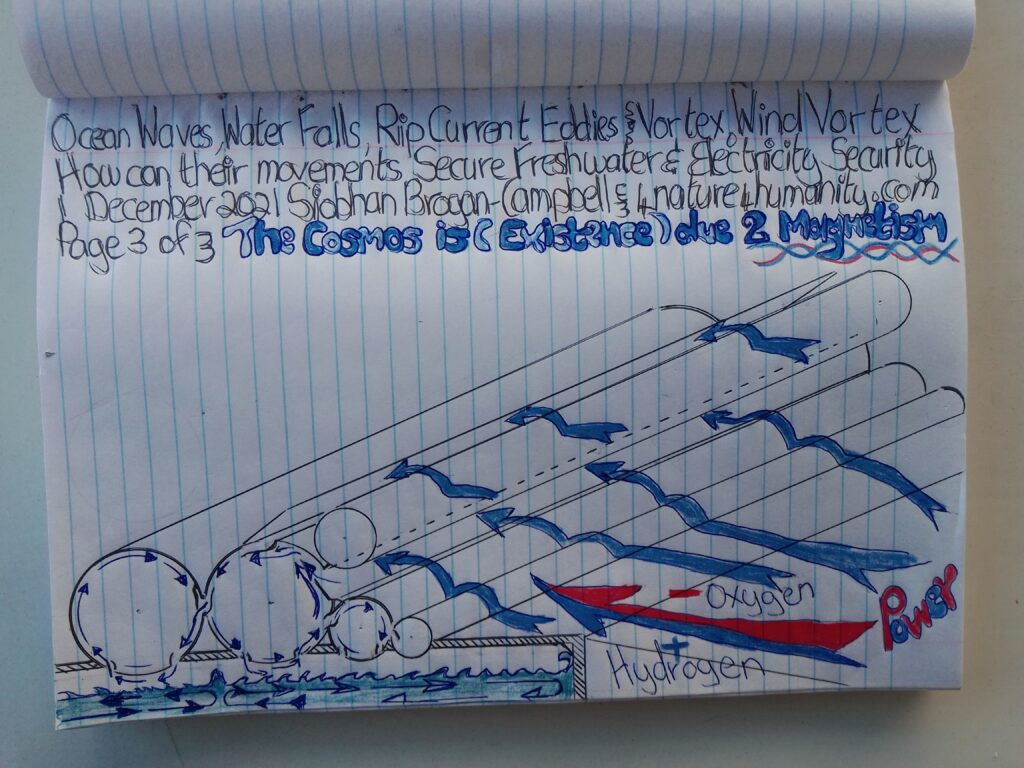 Ocean Waves, Water Falls, Rip Current Eddies & Vortex, Wind Vortex
How can their movements Secure Freshwater & Electricity Security
1 December 2021 Siobhan Brogan-Campbell & 4nature4humanity.com
Page 3 of 3 The Cosmos is (Existence) due 2 Magnetism
- Oxygen
Power
+
Hydrogen